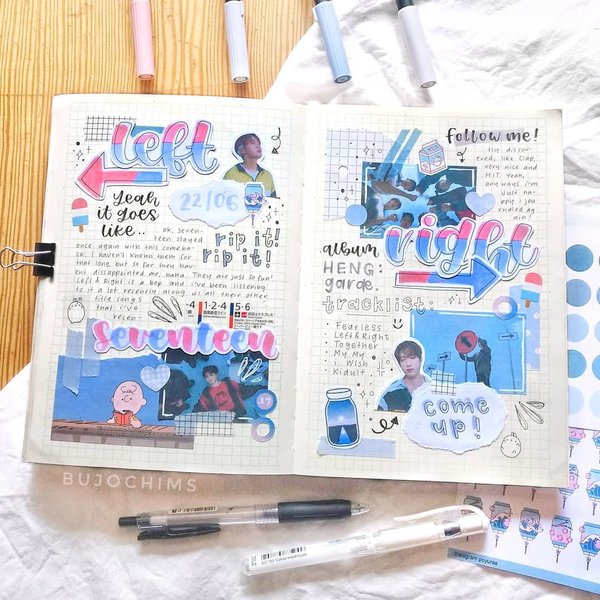 left
22/06
Yeah
it goes
like..
rip it!
rip it!
ok, seven-
teen slayed
once again with this comeba-
ck. I haven't known them for
that long, but so far they hav-
ent disappointed me, haha. They are just so fun!
Left & Right is a bop and i've been listening
to it a lot recently along w/ all their other
title songs
that i've
recen-
-4
1-2-4
5-6
seventeen
17
follow me!
tly discov-
ered, like Clap,
very nice and
HIT. Yeah,
anyways i'm
just ha-
ppy i jou-
rnaled ag
ain!
right
album
HENG:
garæ.
tracklist:
Fearless
Left & Right
Together
My My
i Wish
Kidult
come
up!
BUJOCHIMS
instagram poyuraa